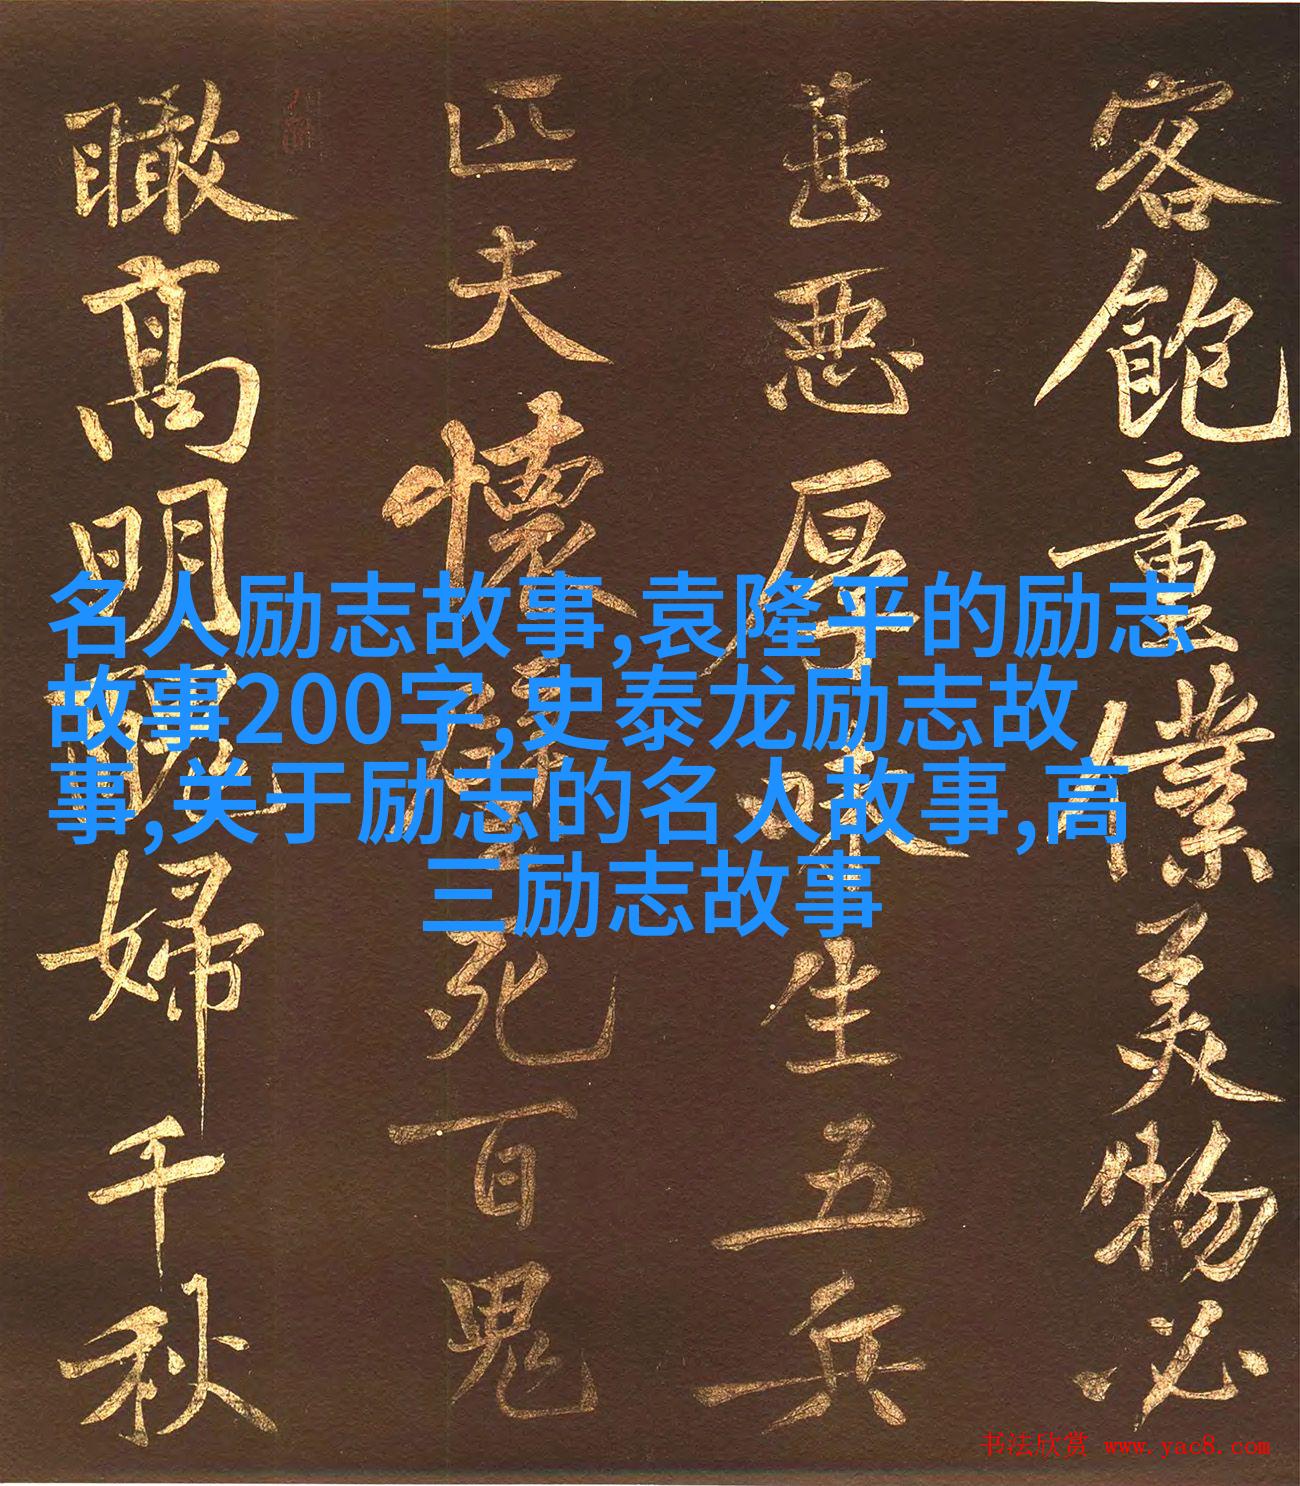 客飽童僕美物必
甚惡厚味生五兵
匹夫懷璧死百鬼
瞰高明醜婦千秋
名人励志故事,袁隆平的励志
故事200字,史泰龙励志故
事,关于励志的名人故事,高
三励志故事
书法欣赏 www.yac8.com